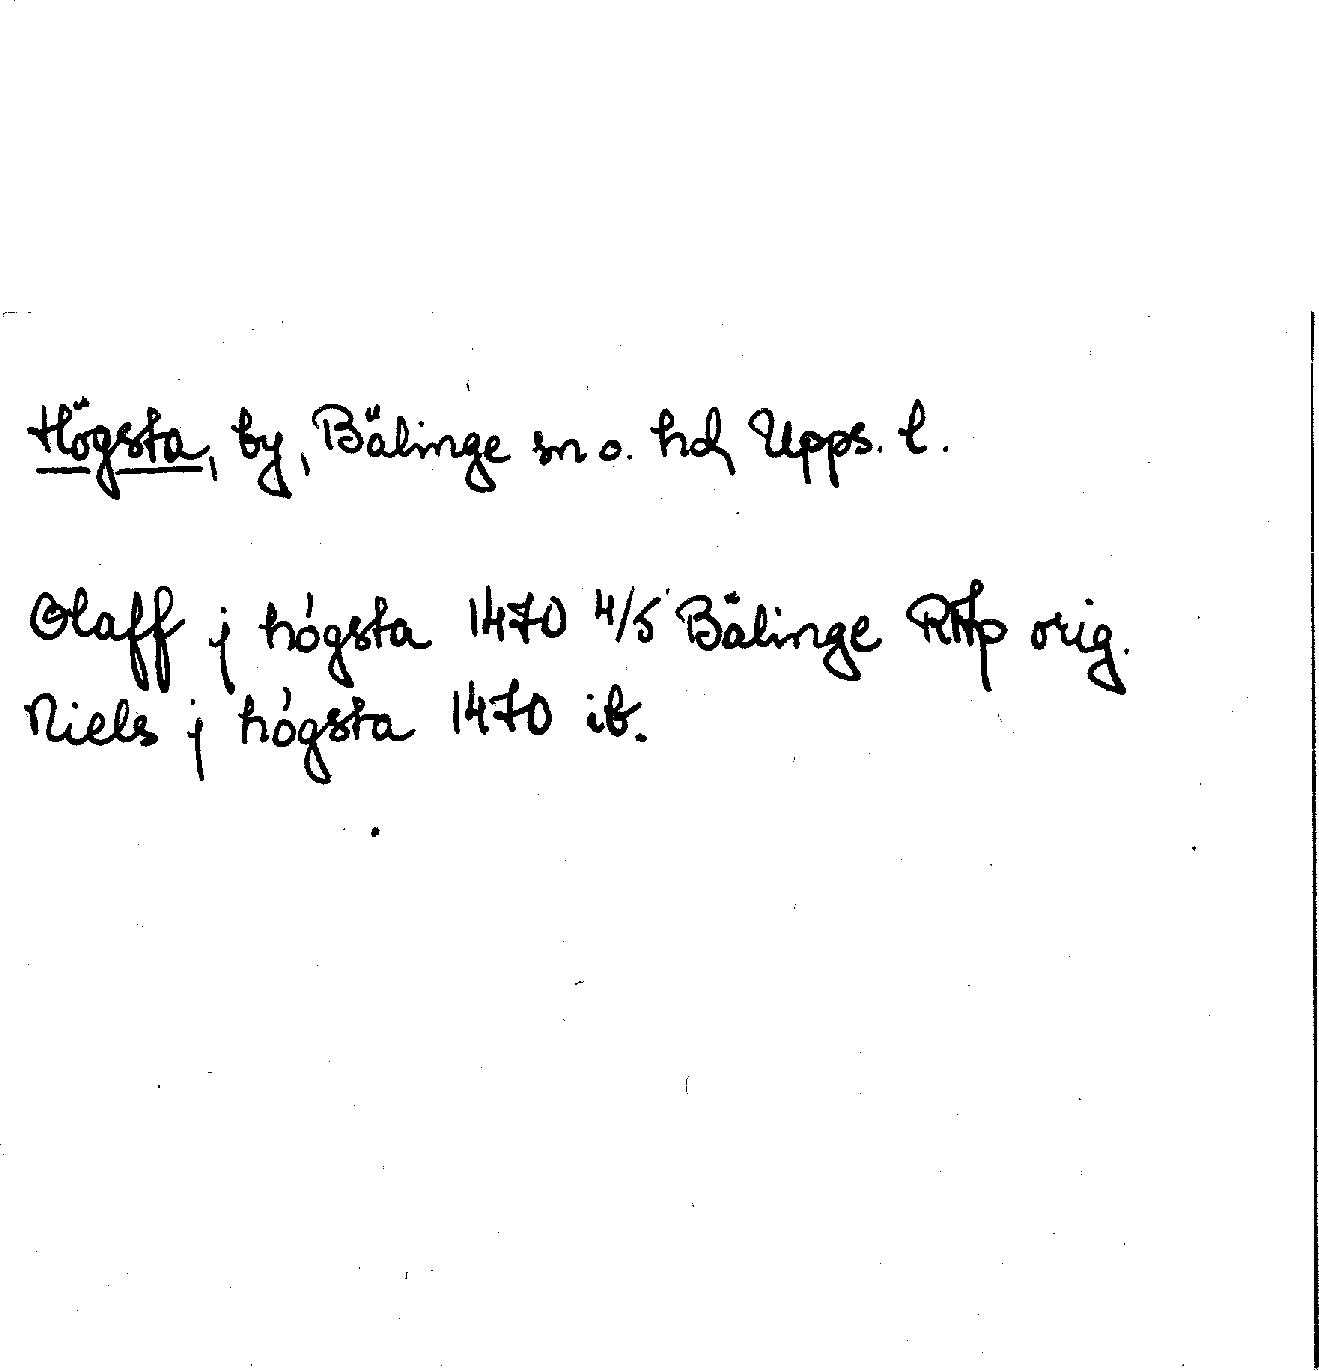 Högsta, by, Bälinge sn o. hd, Upps. l.
Olaff j hógsta 1470 4/5 Bälinge RAp orig.
Niels j hógsta 1470 ib.